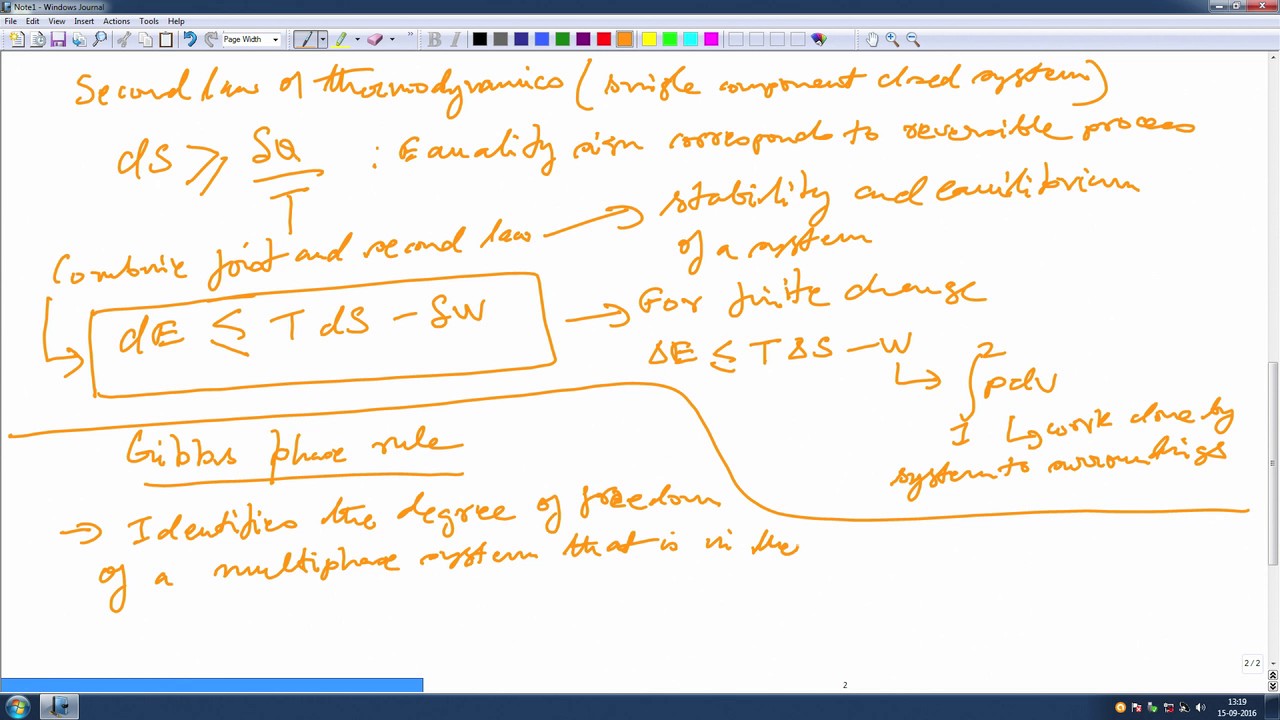 Note1 - Windows Journal
File Edit View Insert Actions Tools Help
Page Width
B I
Second law of thermodynamics ( single component closed system )
dS ≥ δQ / T : Equality sign corresponds to reversible process
Combine first and second law → stability and equilibrium
of a system
dE ≤ T dS - δW → For finite change
ΔE ≤ T ΔS - W
∫₁² pdv
↳ work done by
system to surroundings
Gibbs phase rule
→ Identifies the degree of freedom
of a multiphase system that is in the
2 / 2
2
13:19
15-09-2016